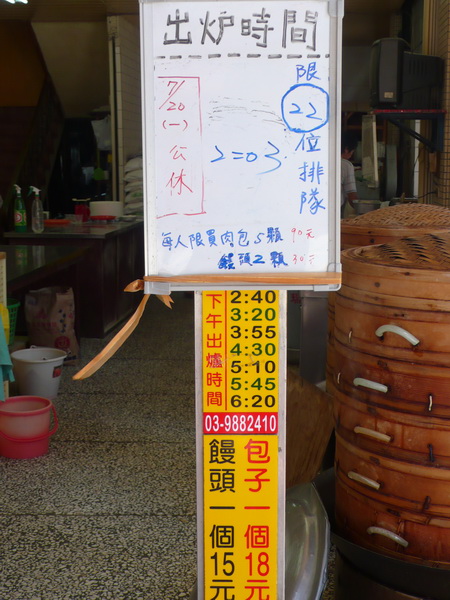 出炉時間
限22位排隊
2=03
7/20(一)公休
每人限買肉包5顆 90元
饅頭2顆 30元
下午出爐時間
2:40
3:20
3:55
4:30
5:10
5:45
6:20
03-9882410
包子一個18元
饅頭一個15元